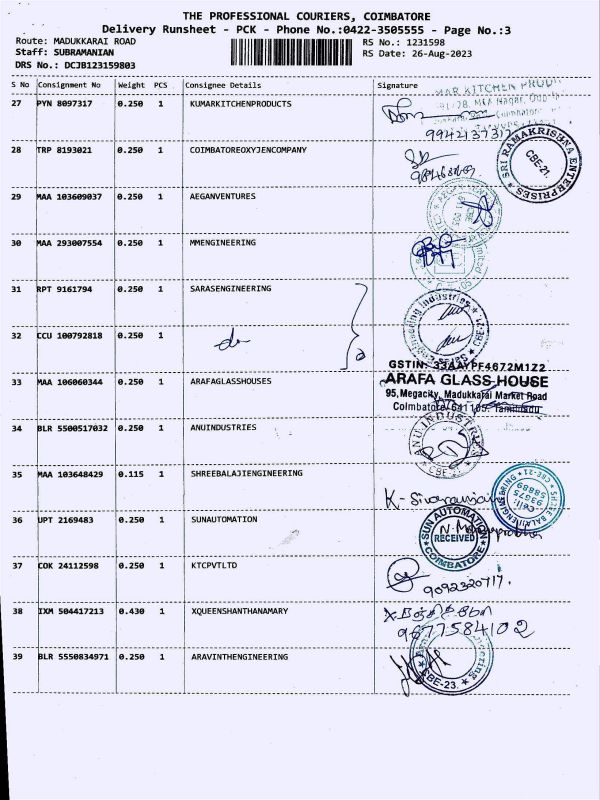 THE PROFESSIONAL COURIERS, COIMBATORE
Delivery Runsheet - PCK - Phone No.:0422-3505555 - Page No.:3
Route: MADUKKARAI ROAD RS No.: 1231598
Staff: SUBRAMANIAN RS Date: 26-Aug-2023
DRS No.: DCJB123159803
S No Consignment No Weight PCS Consignee Details Signature
27 PYN 8097317 0.250 1 KUMARKITCHENPRODUCTS
9942137317
28 TRP 8193021 0.250 1 COIMBATOREOXYJENCOMPANY
SRI RAMAKRISHNA ENTERPRISES CBE-21.
29 MAA 103609037 0.250 1 AEGANVENTURES
30 MAA 293007554 0.250 1 MMENGINEERING
31 RPT 9161794 0.250 1 SARASENGINEERING
32 CCU 100792818 0.250 1 do
GSTIN: 33AAYPF4672M1Z2
33 MAA 106060344 0.250 1 ARAFAGLASSHOUSES ARAFA GLASS HOUSE
95, Megacity, Madukkarai Market Road
Coimbatore 641105. Tamilnadu
34 BLR 5500517032 0.250 1 ANUINDUSTRIES
ANU INDUSTRIES
35 MAA 103648429 0.115 1 SHREEBALAJIENGINEERING
36 UPT 2169483 0.250 1 SUNAUTOMATION
SUN AUTOMATION RECEIVED COIMBATORE
37 COK 24112598 0.250 1 KTCPVTLTD
9092320717.
38 IXM 504417213 0.430 1 XQUEENSHANTHANAMARY
9677584102
39 BLR 5550834971 0.250 1 ARAVINTHENGINEERING
CBE-23.